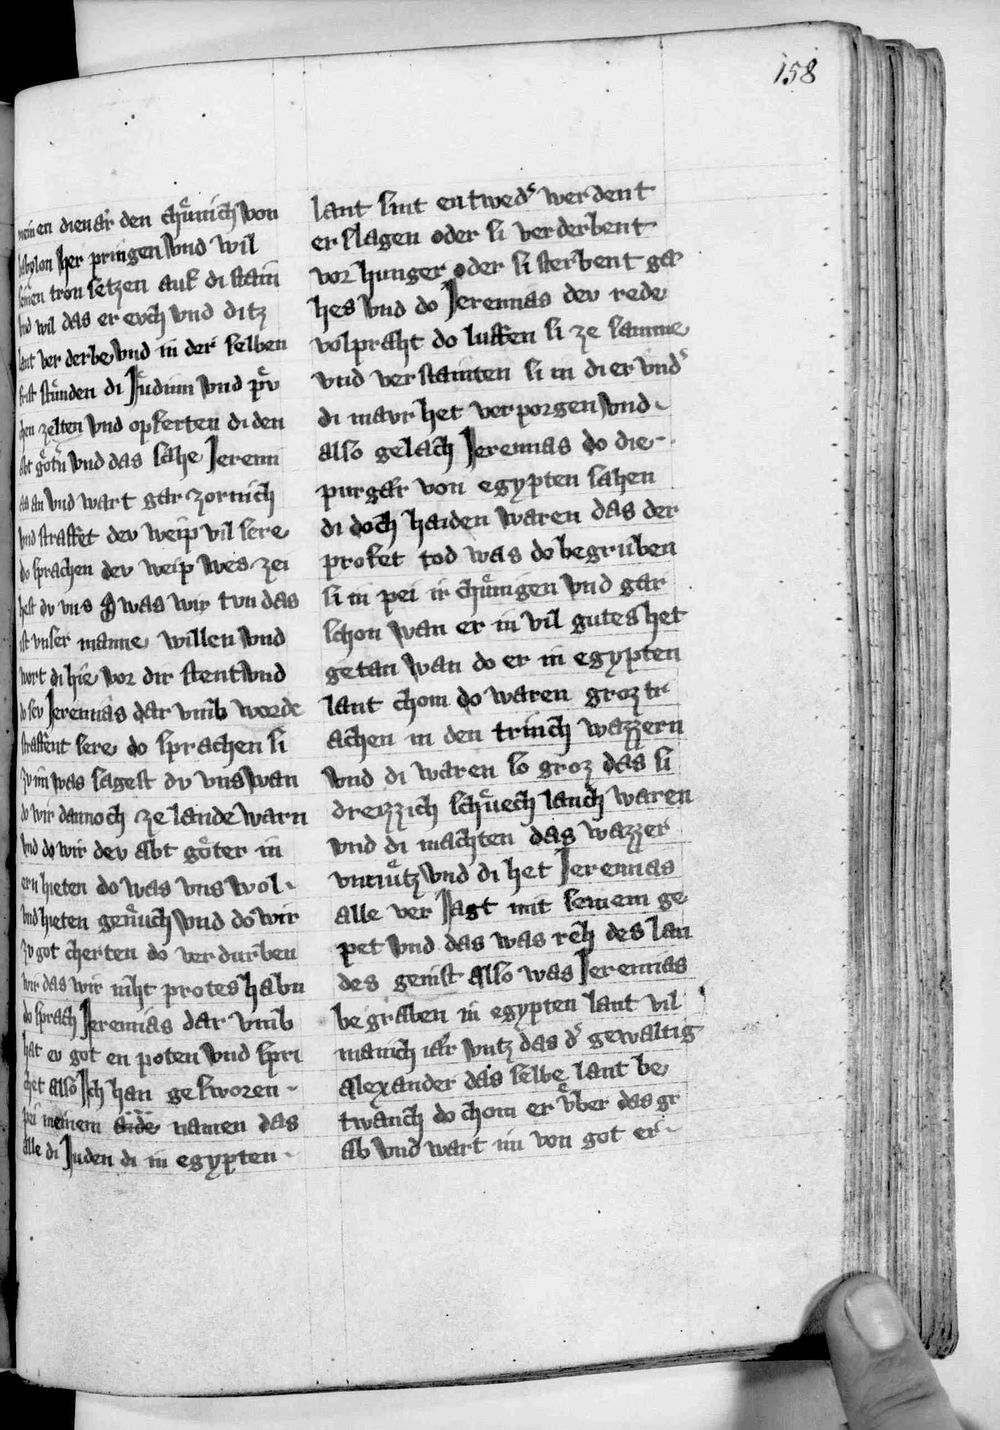 158
meinen dienar den chünich von
babylon her pringen vnd wil
seinen tron setzen auf di stain
vnd wil das er evch vnd ditz
lant ver derbe vnd in der selben
frist stunden di Judinn vnd prv
chen zelten vnd opferten di den
abt götn vnd das sahe Jeremi
as an vnd wart gar zornich
vnd straffet dev weip vil sere
do sprachen dev weip wes zei
hest dv vns was wir tvn das
ist vnser manne willen vnd
wort di hie vor dir stent vnd
do sev Jeremias dar vmb worde
straffent sere do sprachen si
zv im was sagest dv vns wan
do wir dannoch ze lande warn
vnd do wir dev abt göter in
ern hieten do was vns wol
vnd hieten genuch vnd do wir
zv got cherten do verdurben
wir das wir niht protes habn
do sprach Jeremias dar vmb
hat ev got en poten vnd spri
chet also Ich han gesworen
pei meinem aide namen das
alle di Juden di in egypten
lant sint entweds werdent
erslagen oder si verderbent
vor hunger oder si sterbent gæ
hes vnd do Jeremias dev rede
volpraht do luffen si ze samme
vnd verstainten si in di er vnds
di mavr het verporgen vnd
also gelach Jeremias do die
purgær von egypten sahen
di doch haiden waren das der
profet tod was do begruben
si in pei ir chüngen vnd gar
schon wan er in vil gutes het
getan wan do er in egypten
lant chom do waren groz tr
achen in den trinch wazzern
vnd di waren so groz das si
dreizzich schuech lanch waren
vnd di machten das wazzer
vnnutz vnd di het Jeremias
alle ver Jagt mit seinem ge
pet vnd das was reh des lan
des genist also was Jeremias
begraben in egypten lant vil
manich iar vntz das ds gewaltig
alexander das selbe lant be
twanch do chom er vber das gr
ab vnd wart im von got er